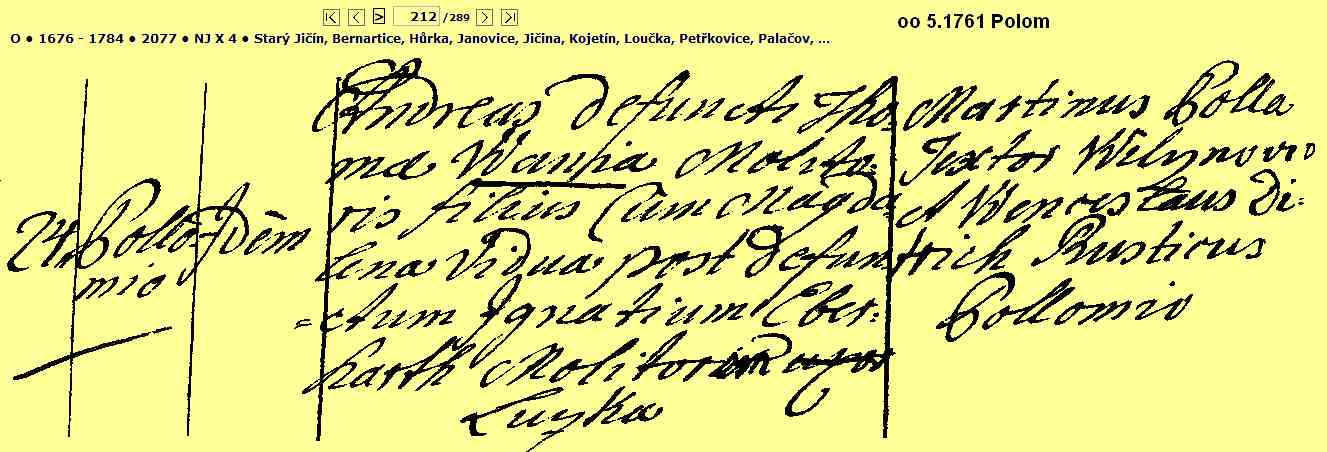 212 /289
oo 5.1761 Polom
O ● 1676 - 1784 ● 2077 ● NJ X 4 ● Starý Jičín, Bernartice, Hůrka, Janovice, Jičina, Kojetín, Loučka, Petřkovice, Palačov, ...
24. Pollo- Idem
mio
Andreas defuncti Tho-
mæ Wania Molito-
ris filius Cum Magda-
lena Vidua post defun-
=ctum Ignatium Eber-
harth Molitorem
Martinus Polla
Textor Wilynovio
A Wenceslaus Di-
trich Rusticus
Pollomio